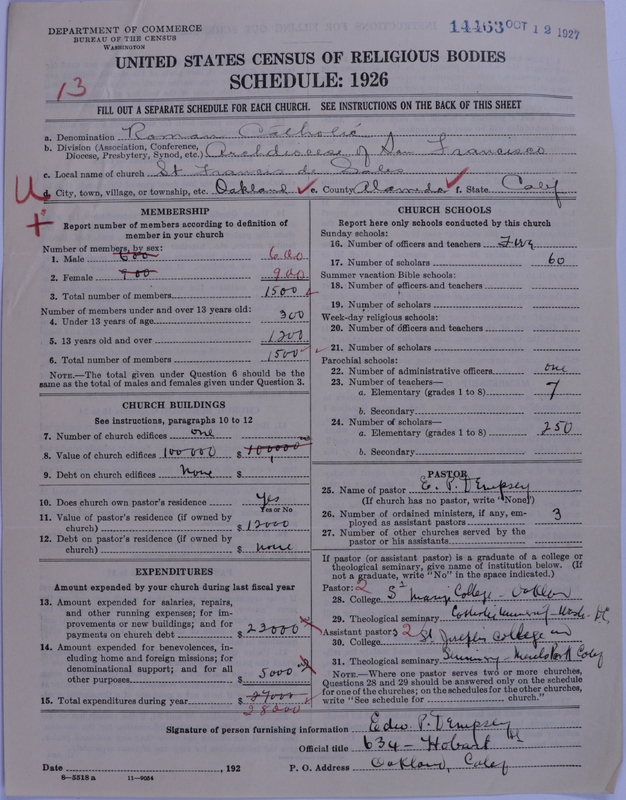 DEPARTMENT OF COMMERCE
BUREAU OF THE CENSUS
WASHINGTON
14463 OCT 12 1927
UNITED STATES CENSUS OF RELIGIOUS BODIES
SCHEDULE: 1926
13
FILL OUT A SEPARATE SCHEDULE FOR EACH CHURCH. SEE INSTRUCTIONS ON THE BACK OF THIS SHEET
a. Denomination Roman Catholic
b. Division (Association, Conference, Diocese, Presbytery, Synod, etc.) Archdiocese of San Francisco
c. Local name of church St Francis de Sales
U d. City, town, village, or township, etc. Oakland e. County Alameda f. State Calif
+
MEMBERSHIP
Report number of members according to definition of
member in your church
Number of members, by sex:
1. Male 600 600
2. Female 900 900
3. Total number of members 1500
Number of members under and over 13 years old:
4. Under 13 years of age 300
5. 13 years old and over 1200
6. Total number of members 1500
NOTE.—The total given under Question 6 should be the
same as the total of males and females given under Question 3.
CHURCH BUILDINGS
See instructions, paragraphs 10 to 12
7. Number of church edifices one
8. Value of church edifices 100000 $ 100000
9. Debt on church edifices None $
10. Does church own pastor's residence Yes
Yes or No
11. Value of pastor's residence (if owned by
church) $ 12000
12. Debt on pastor's residence (if owned by
church) $ none
EXPENDITURES
Amount expended by your church during last fiscal year
13. Amount expended for salaries, repairs,
and other running expenses; for im-
provements or new buildings; and for
payments on church debt $ 23000
14. Amount expended for benevolences, in-
cluding home and foreign missions; for
denominational support; and for all
other purposes $ 5000
15. Total expenditures during year $ 27000
28000
CHURCH SCHOOLS
Report here only schools conducted by this church
Sunday schools:
16. Number of officers and teachers Five
17. Number of scholars 60
Summer vacation Bible schools:
18. Number of officers and teachers
19. Number of scholars
Week-day religious schools:
20. Number of officers and teachers
21. Number of scholars
Parochial schools:
22. Number of administrative officers one
23. Number of teachers—
a. Elementary (grades 1 to 8) 7
b. Secondary
24. Number of scholars—
a. Elementary (grades 1 to 8) 250
b. Secondary
PASTOR
25. Name of pastor E. P. Dempsey
(If church has no pastor, write "None")
26. Number of ordained ministers, if any, em-
ployed as assistant pastors 3
27. Number of other churches served by the
pastor or his assistants
If pastor (or assistant pastor) is a graduate of a college or
theological seminary, give name of institution below. (If
not a graduate, write "No" in the space indicated.)
Pastor: 2
28. College St Marys College - Oakland
29. Theological seminary Catholic University - Wash. DC.
Assistant pastor: 2
30. College St Josephs College and
31. Theological seminary Seminary Menlo Park Calif
NOTE.—Where one pastor serves two or more churches,
Questions 28 and 29 should be answered only on the schedule
for one of the churches; on the schedules for the other churches,
write "See schedule for church."
Signature of person furnishing information Edw P. Dempsey
Official title 634 - Hobart
Date , 192 P. O. Address Oakland, Calif
8—5518 a 11—9054